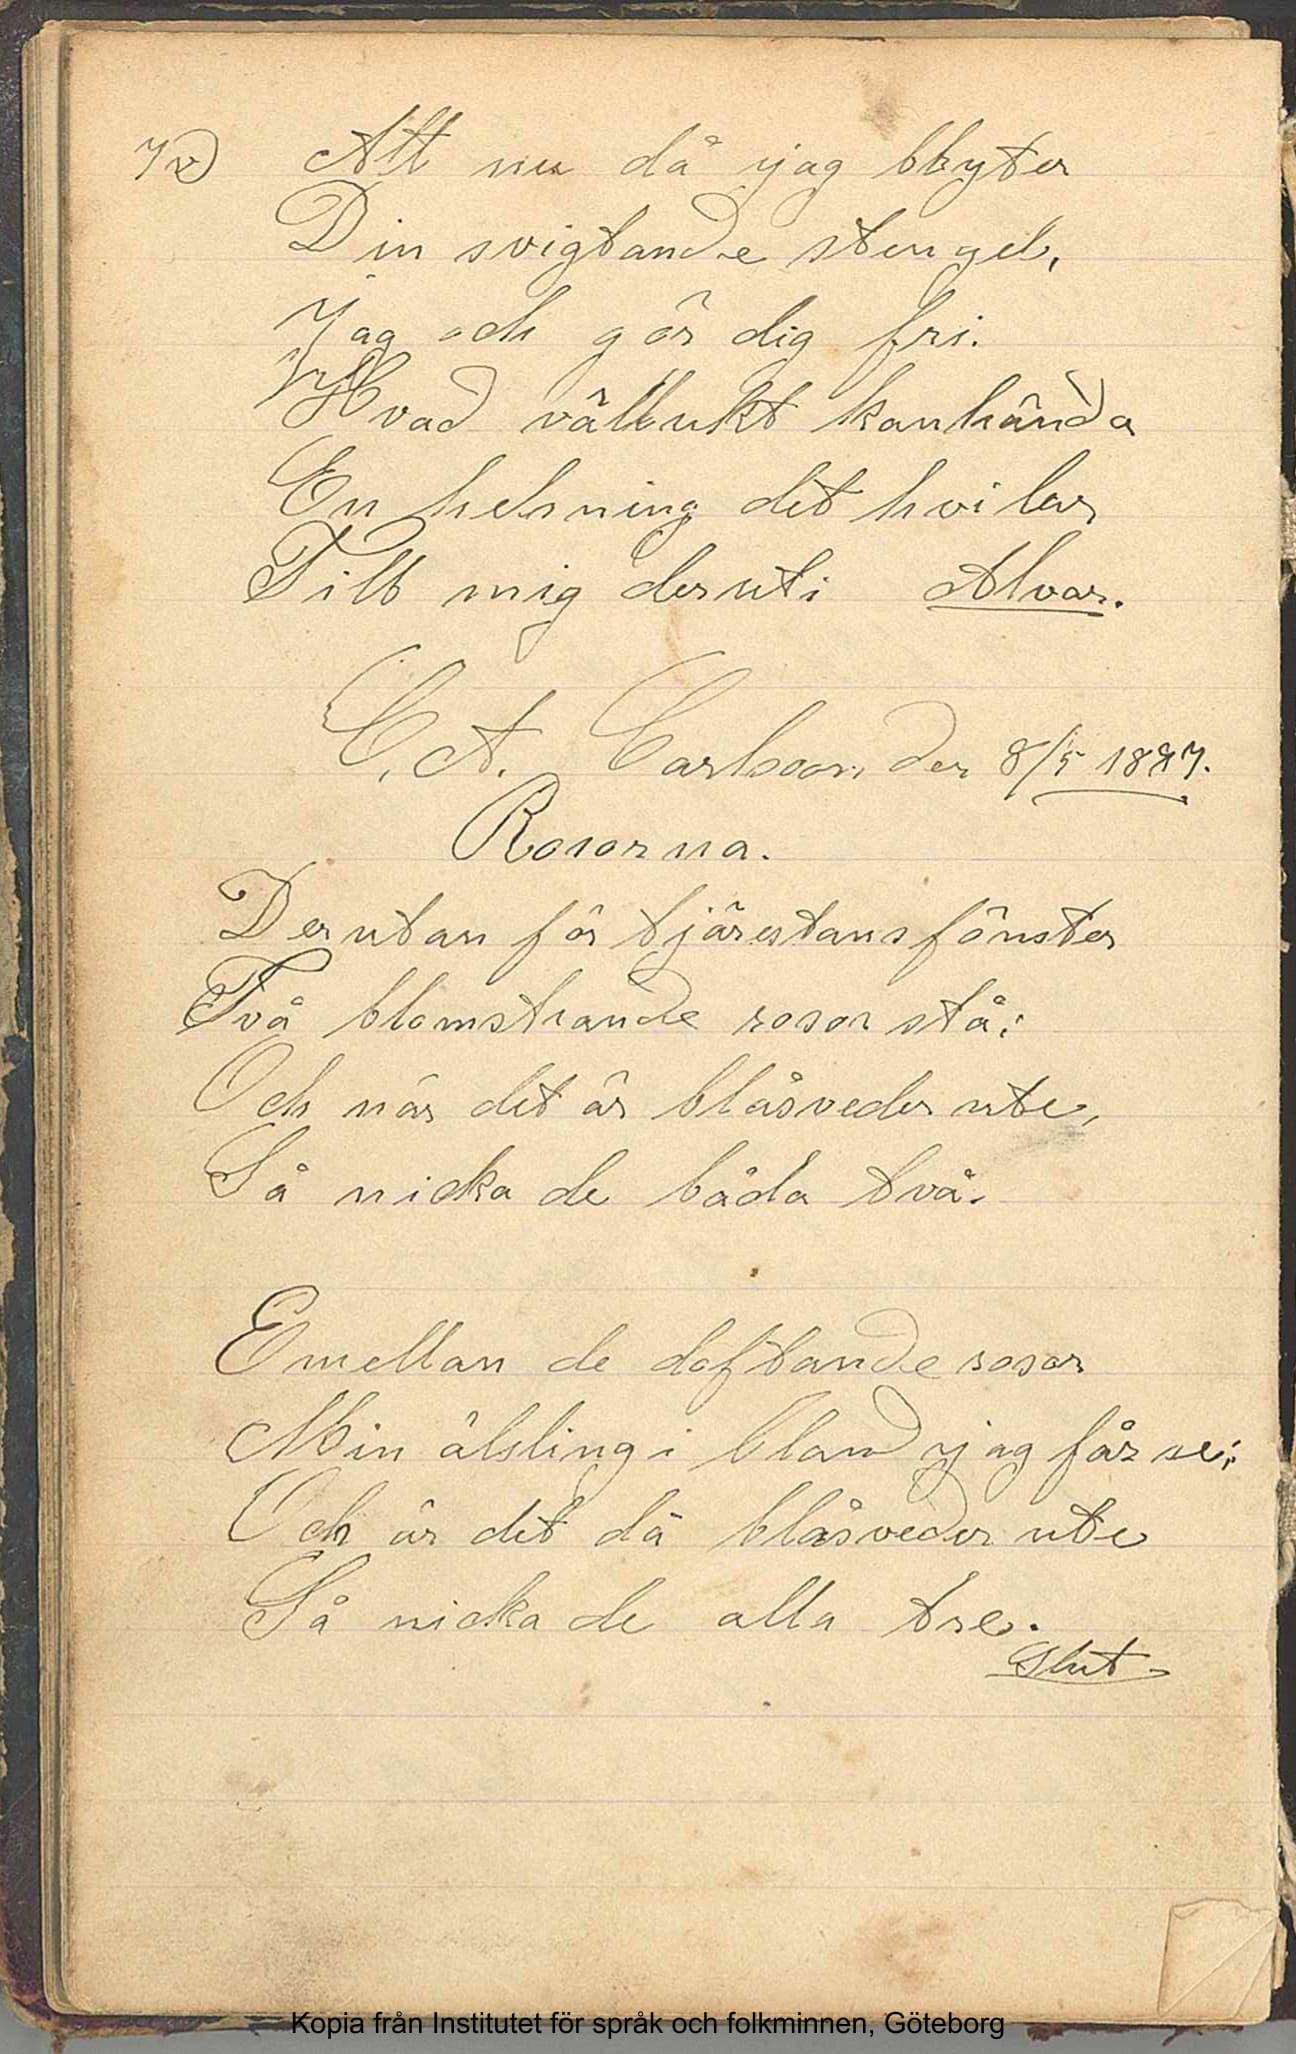 72) Att nu då jag bryter
Din svigtande stengel,
Jag och gör dig fri.
Hvad vällukt kanhända
En helsning det hvilar
Till mig deruti Alvar.
C. A. Carlsson den 8/5 1887.
Rosorna.
Derutan för tjärestans fönster
Två blomstrande rosor stå;
Och när det är blåsveder ute,
Så nicka de båda två.
Emellan de doftande rosor
Min älsling i bland jag får se;
Och är det då blåsveder ute
Så nicka de alla tre.
Slut
Kopia från Institutet för språk och folkminnen, Göteborg